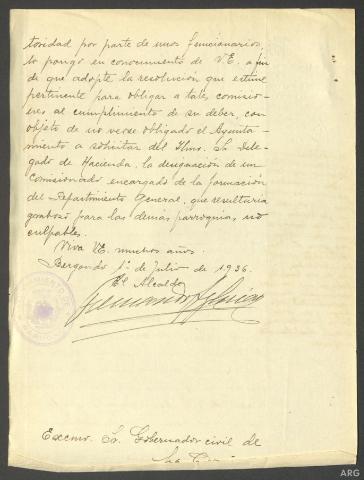 toridad por parte de unos funcionarios,
lo pongo en conocimiento de V.E. a fin
de que adopte la resolución que estime
pertinente para obligar a tales comisio-
nes al cumplimiento de su deber, con
objeto de no verse obligado el Ayunta-
miento a solicitar del Ilmo. Sr. Dele-
gado de Hacienda, la designación de un
comisionado encargado de la formación
del Repartimiento General, que resultaria
gravoso para las demas parroquias, no
culpables.
Viva V.E. muchos años.
Bergondo 1º de Julio de 1936.
El Alcalde
Excmo. Sr. Gobernador civil de
La
ARG